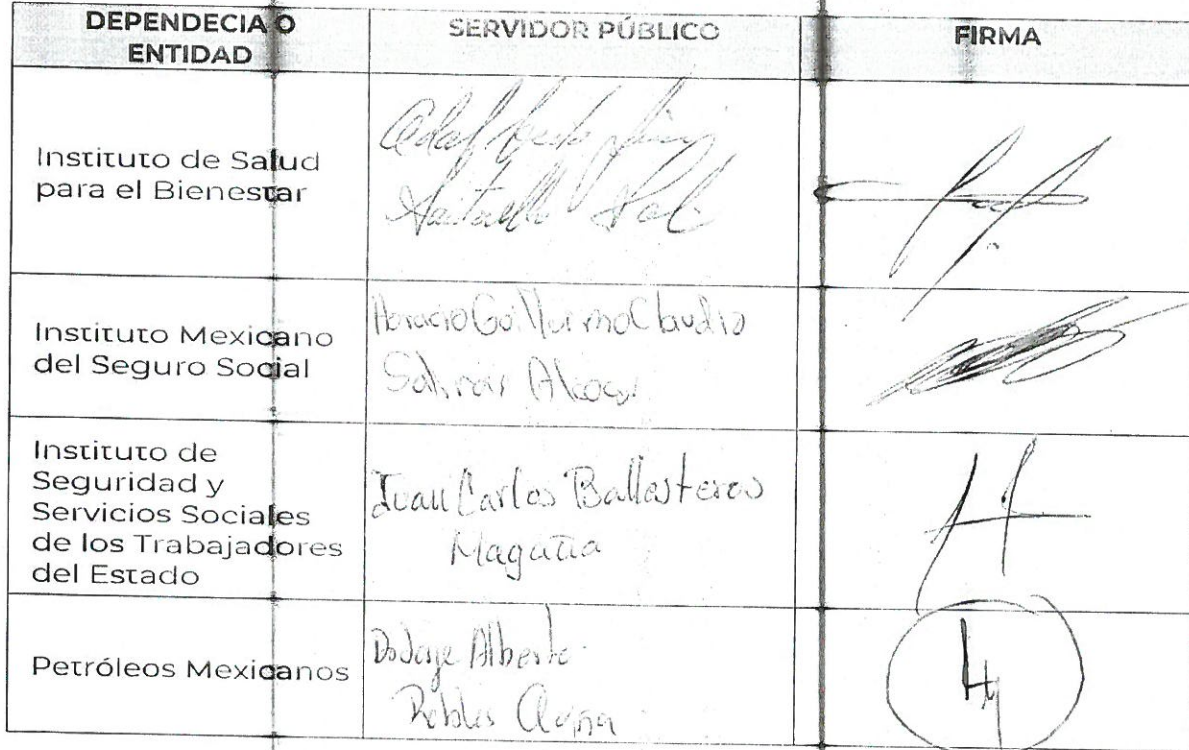 DEPENDECIA O
ENTIDAD
SERVIDOR PÚBLICO
FIRMA
Instituto de Salud
para el Bienestar
Instituto Mexicano
del Seguro Social
Horacio Guillermo Claudio
Instituto de
Seguridad y
Servicios Sociales
de los Trabajadores
del Estado
Juan Carlos Ballesteros
Magaña
Petróleos Mexicanos
Alberto
Robles